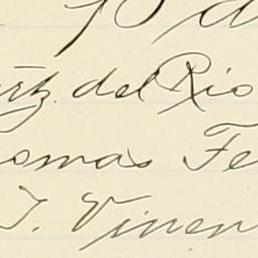 rtz. del Rio
omas Fe
T. Vinen